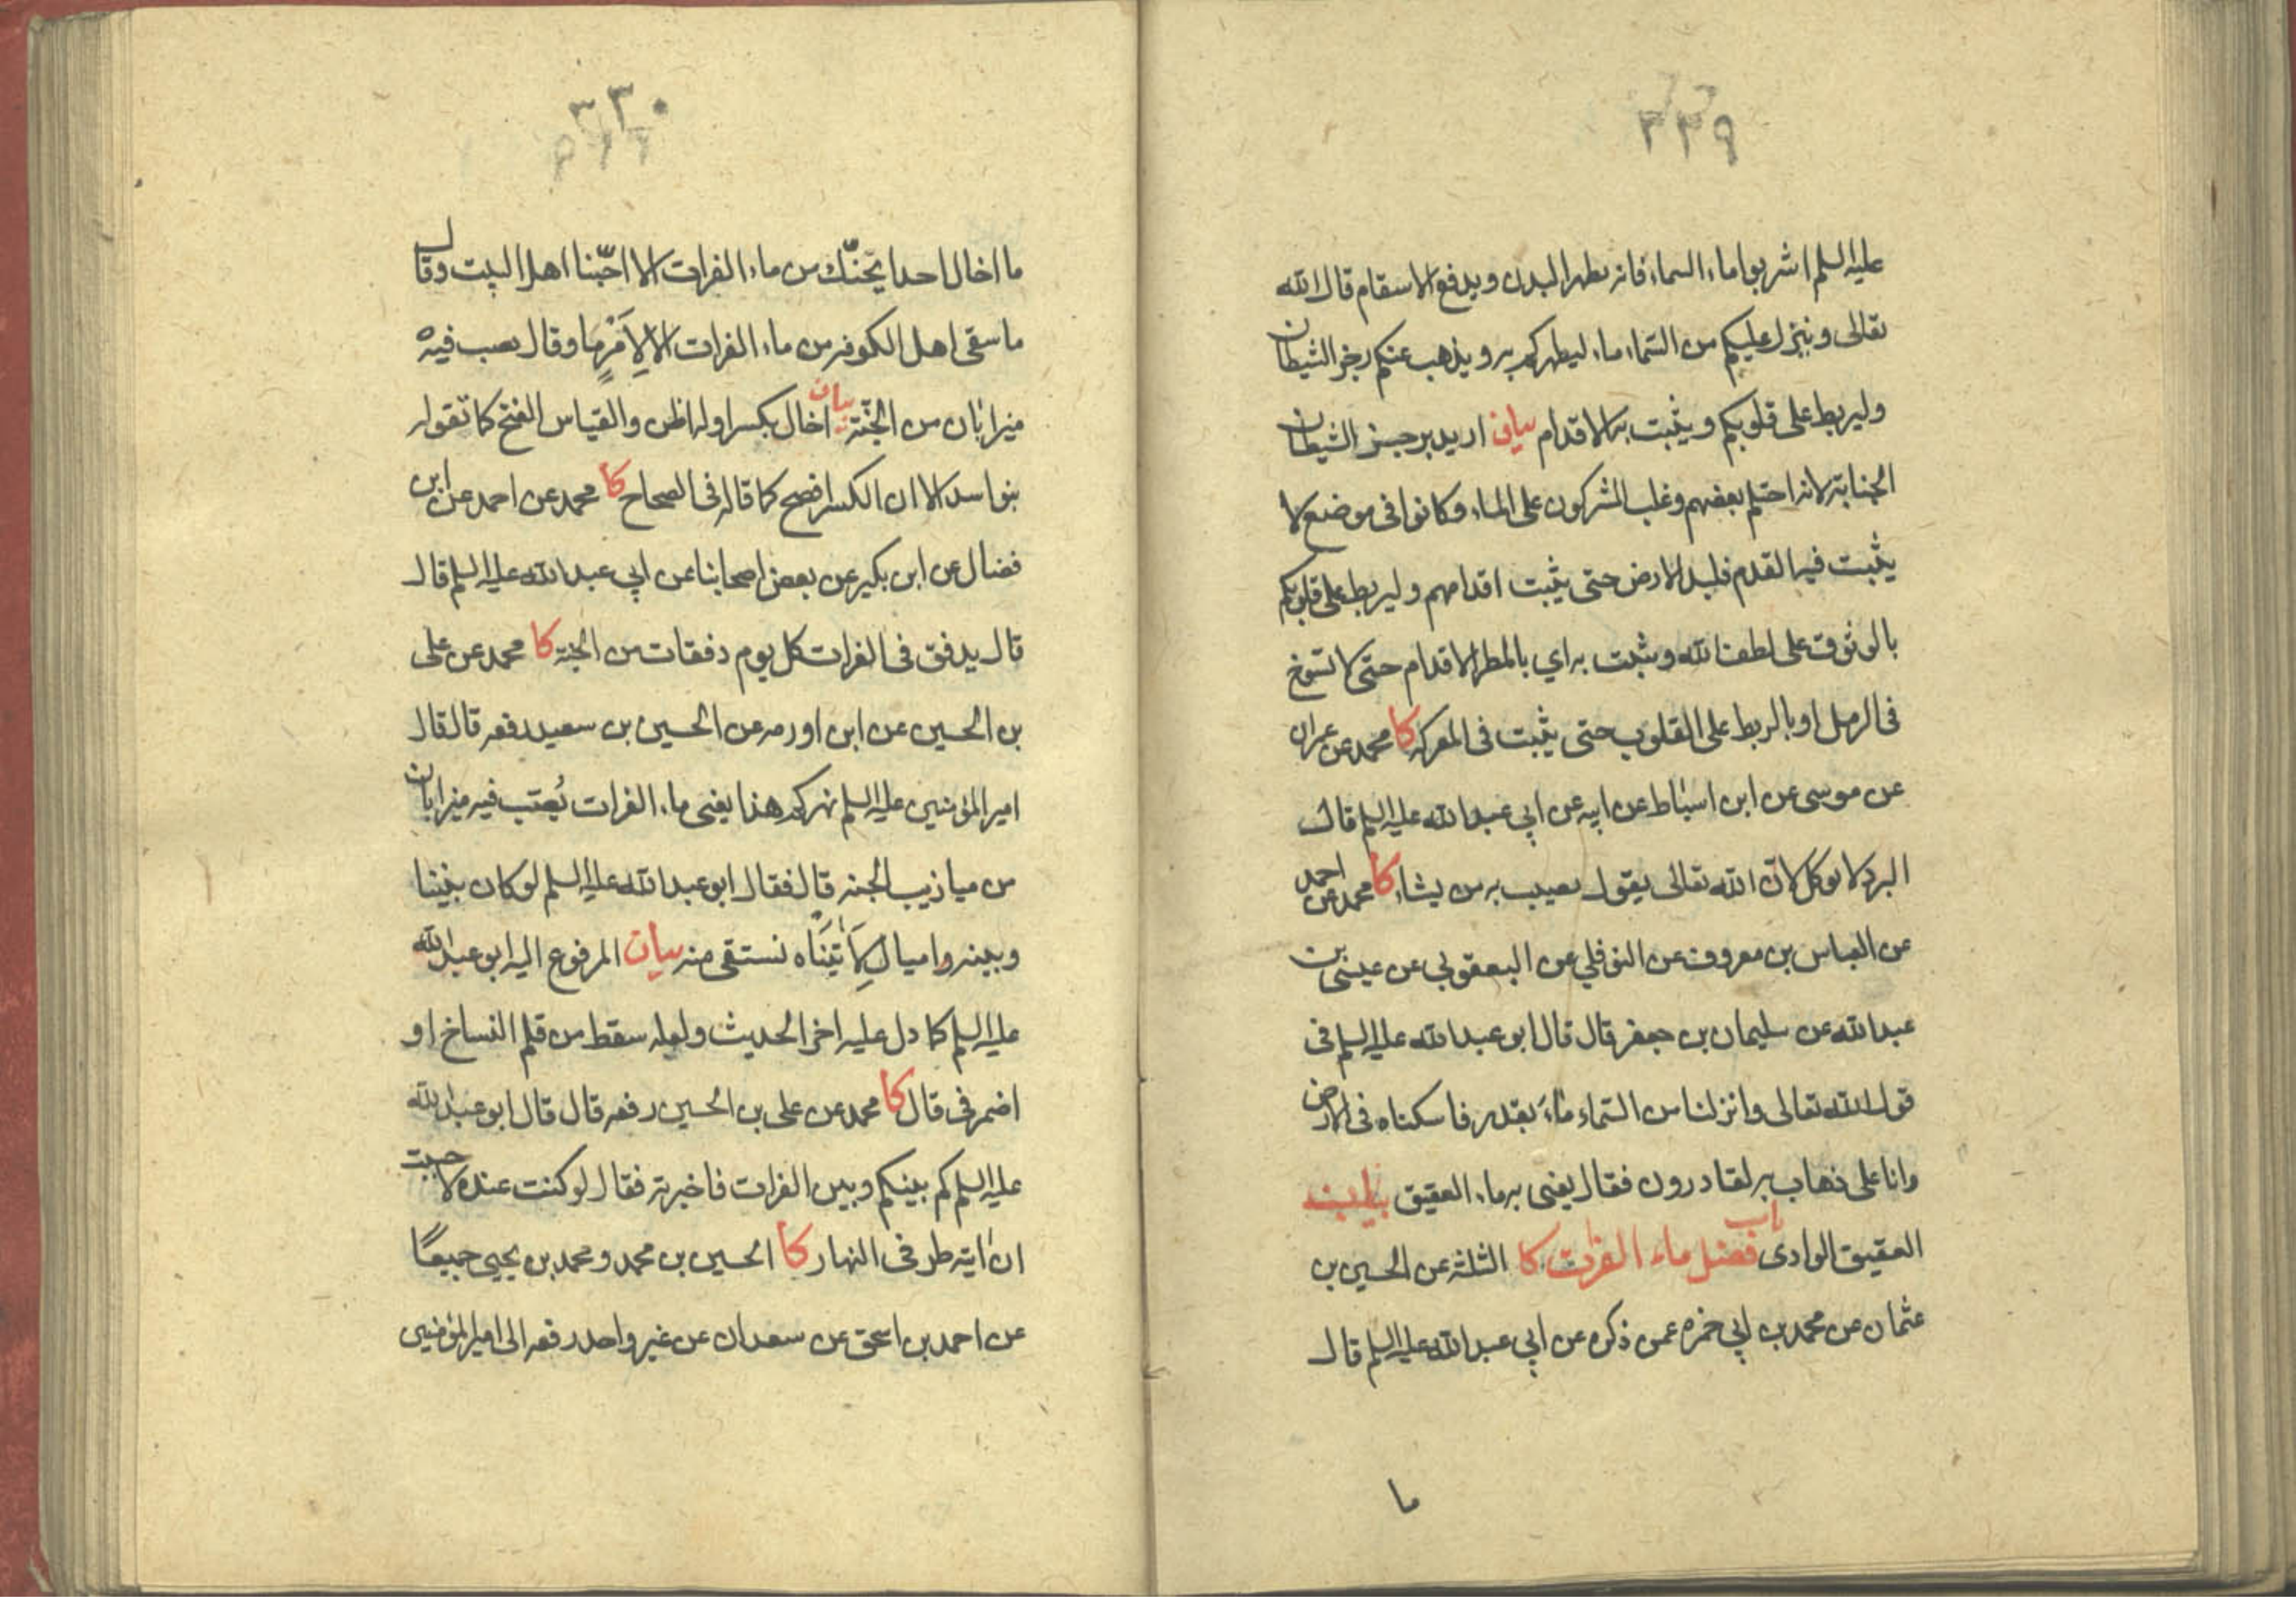 ٣٢٩
عليه السلم اشربوا ماء السماء فانه يطهر البدن ويدفع الاسقام قال الله
تعالى وينزل عليكم من السماء ماء ليطهركم به ويذهب عنكم رجز الشيطان
وليربط على قلوبكم ويثبت به الاقدام بيان اريد برجز الشيطان
الجنابة لانه احتلم بعضهم وغلب المشركون على الماء وكانوا فى موضع لا
يثبت فيه القدم فلبد الارض حتى يثبت اقدامهم وليربط على قلوبكم
بالوثوق على لطف الله ويثبت به اي بالمطر الاقدام حتى لا تسوخ
فى الرمل او بالربط على القلوب حتى يثبت فى المعركه كا محمد عن عمران
عن موسى عن ابن اسباط عن ابيه عن ابي عبدالله عليه السلم قال
البرد لا يوكل لان الله تعالى يقول يصيب به من يشاء كا محمد عن احمد
عن العباس بن معروف عن النوفلي عن اليعقوبي عن عيسى بن
عبدالله عن سليمان بن جعفر قال قال ابو عبدالله عليه السلم فى
قول الله تعالى وانزلنا من السماء ماء بقدر فاسكناه فى الارض
وانا على ذهاب به لقادرون فقال يعنى به ماء العقيق بيان
العقيق الوادى باب فضل ماء الفرات كا الثلثة عن الحسين بن
عثمان عن محمد بن ابي حمزه عمن ذكره عن ابي عبدالله عليه السلم قال
ما
٣٣٠
ما اخال احدا يحنّك من ماء الفرات الا احبّنا اهل البيت وقال
ما سقى اهل الكوفه من ماء الفرات الا لِاَمْرٍ ما وقال يصب فيه
ميزابان من الجنّة بيان اخال بكسر اوله اظن والقياس الفتح كما تقوله
بنو اسد الا ان الكسر افصح كما قاله فى الصحاح كا محمد عن احمد عن ابن
فضال عن ابن بكير عن بعض اصحابنا عن ابي عبدالله عليه السلم قال
قال يدفق فى الفرات كل يوم دفقات من الجنة كا محمد عن على
بن الحسين عن ابن اورمه عن الحسين بن سعيد رفعه قال قال
امير المؤمنين عليه السلم نهركم هذا يعنى ماء الفرات يُصب فيه ميزابان
من ميازيب الجنه قال فقال ابو عبدالله عليه السلم لو كان بيننا
وبينه اميال لَاَتَيْنَاه نستقى منه بيان المرفوع اليه ابو عبدالله
عليه السلم كما دل عليه اخر الحديث ولعله سقط من قلم النساخ او
اضمر فى قال كا محمد عن على بن الحسين رفعه قال قال ابو عبدالله
عليه السلم كم بينكم وبين الفرات فاخبرته فقال لو كنت عنده لاحببت
ان اتيه طرفى النهار كا الحسين بن محمد ومحمد بن يحيى جميعًا
عن احمد بن اسحق عن سعدان عن غير واحد رفعه الى امير المؤمنين